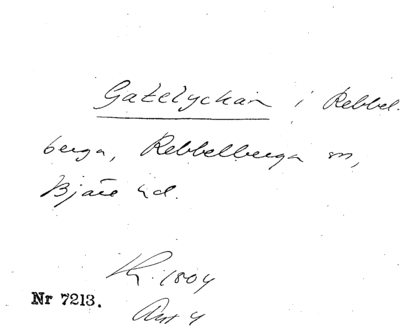 Gatelyckan i Rebbel-
berga, Rebbelberga sn,
Bjäre hd.
1804
Nr 7213.